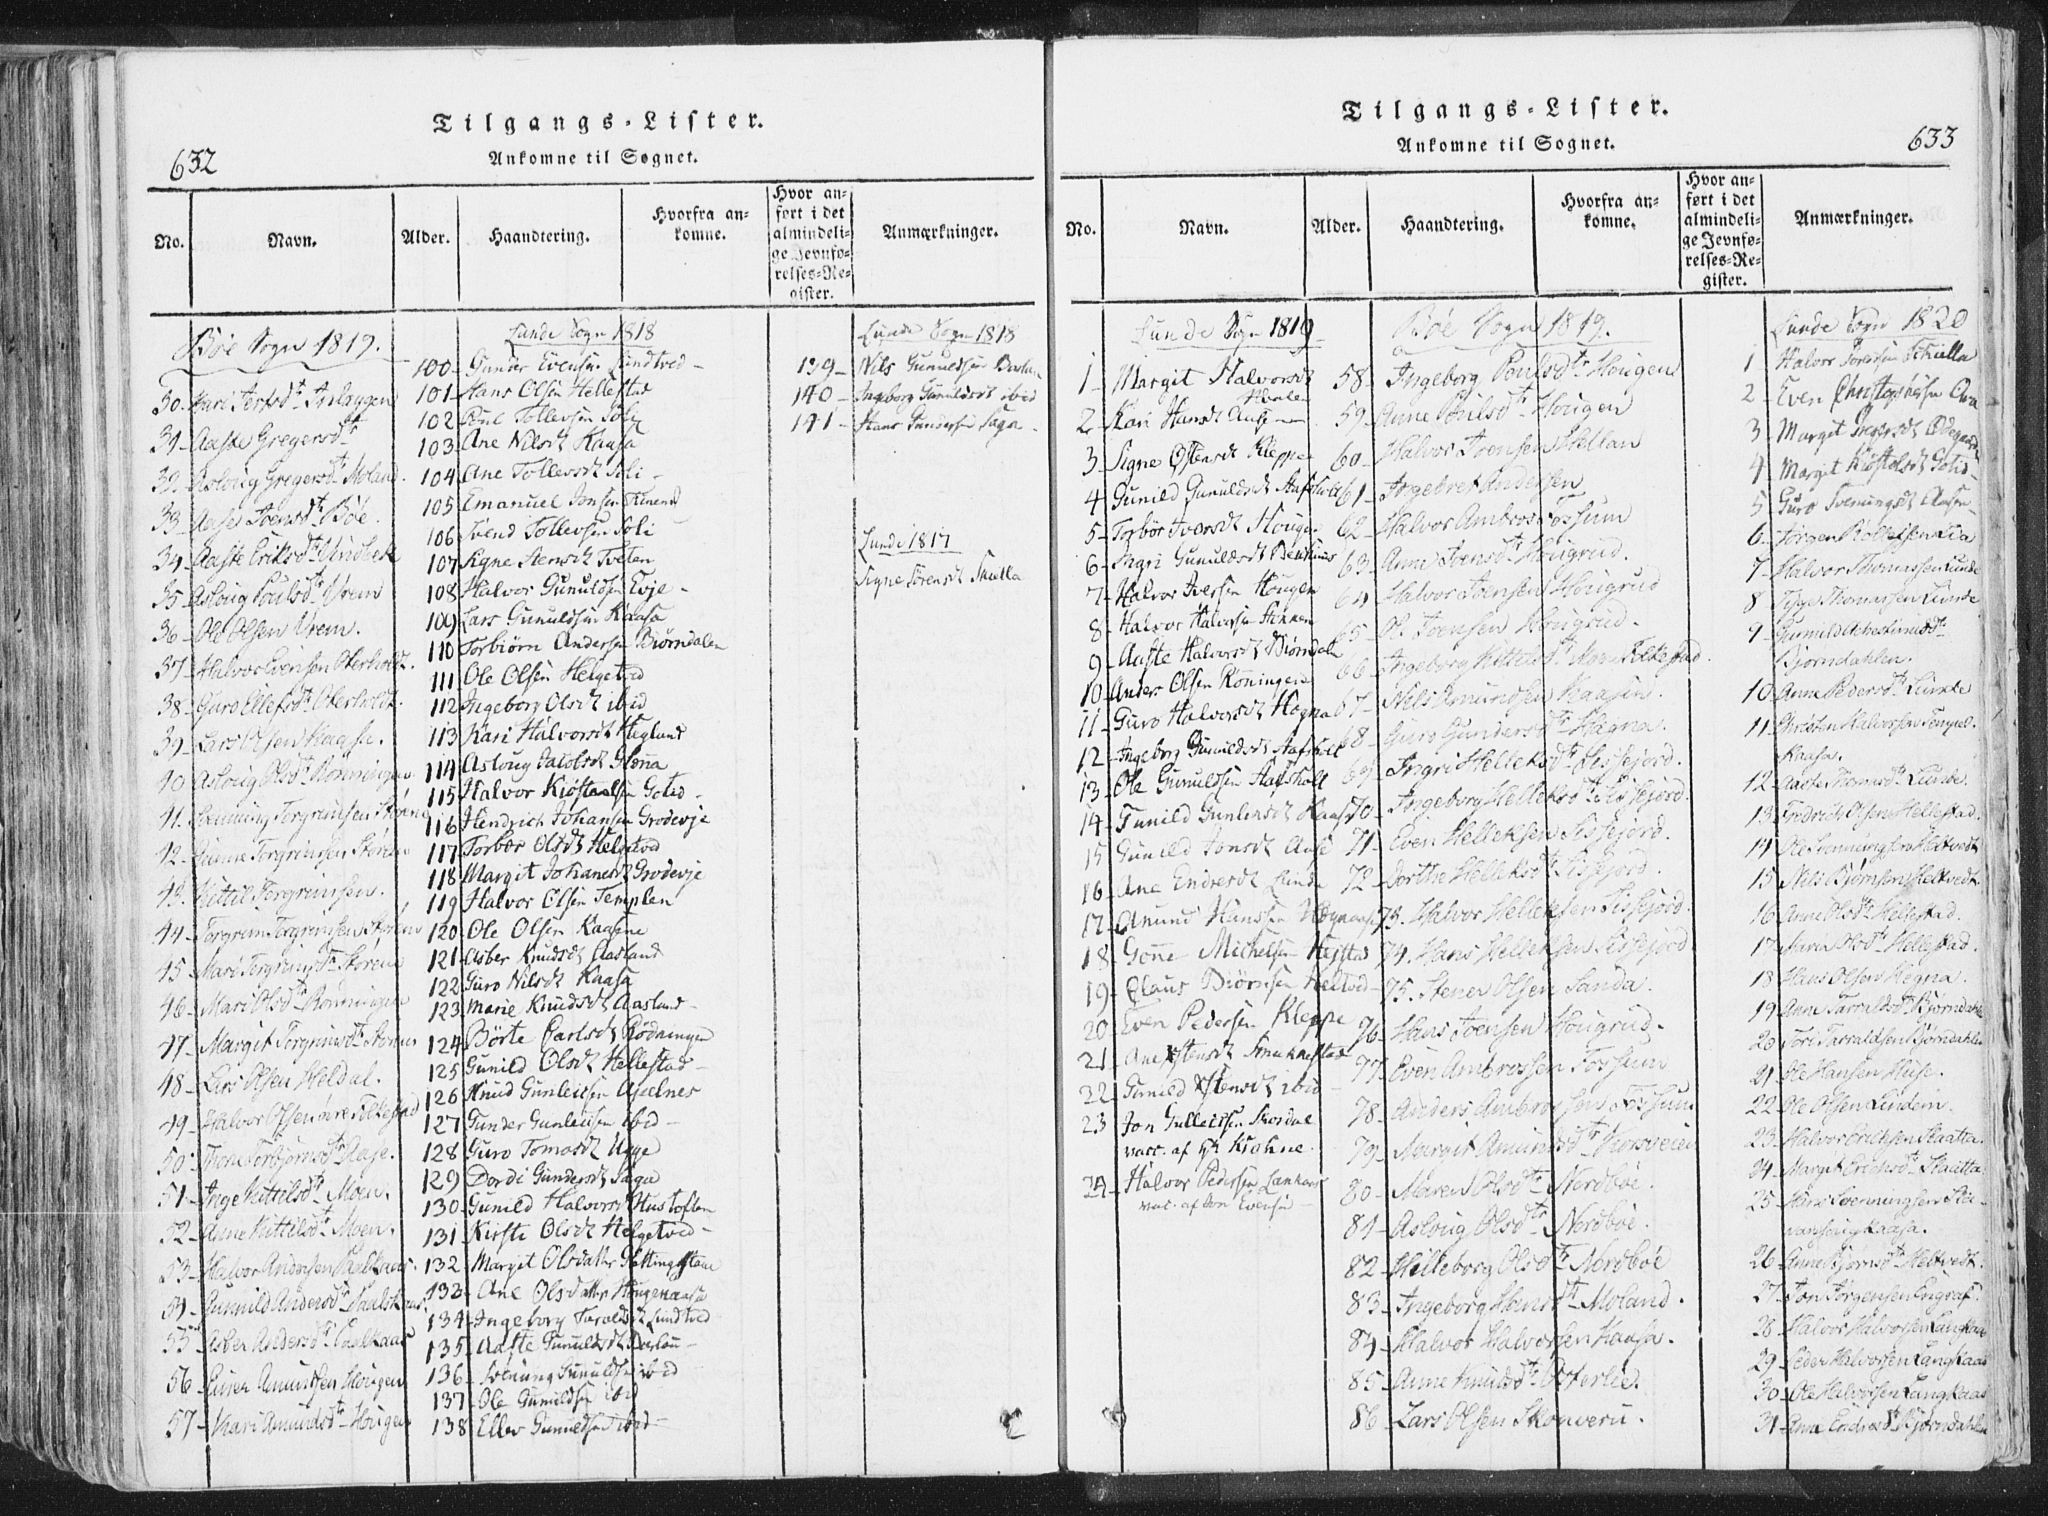 632
Tilgangs-Lister.
Ankomne til Sognet.
No.
Navn.
Alder.
Haandtering.
Hvorfra an-
komne.
Hvor an-
ført i det
almindeli-
ge Jevnfø-
relses-Re-
gister.
Anmærkninger.
Bøe Sogn 1819.
30. Kari
31- Aaste Gregersdtr
32- Aslaug Gregersdtr Moland.
33- Aase Joensdtr Bøe.
34- Aaste Eriksdtr Lindbek
35- Aslaug Poulsdtr Vrem
36- Ole Olsen Vrem.
37- Halvor Evensen Oterholt.
38- Guro Ellefsdtr Oterholdt.
39- Lars Olsen Kaase.
40 Aslaug Olsdtr Ronningen
41. Svenning Torgrimsen Storene
42. Gunne Torgrimsen Storene
43. Kittil Torgrimsen.
44- Torgrim Torgrimsen Storene
45- Mari Torgrimsdtr Storene
46- Mari Olsdtr Ronningen
47- Margit Torgrimsdtr Storene
48- Lars Olsen Heldal.
49- Halvor Olsen øvre Folkestad
50- Thone Torbjornsdtr Aase.
51- Inge Kittilsdtr Moen.
52- Anne Kittilsdtr Moen.
53- Halvor Andersen
54- Gunnild Andersdtr
55- Asber Andersdtr
56- Amundsen Hougen
57- Kari Amundsdtr Hougen
Lunde Sogn 1818
100- Gunder Evensen Lindtved-
101- Hans Olsen Hellestad
102 Poul Tollevsen Soli
103- Ane Nilsdt Kaasa
104- Ane Tollevsdt Soli-
105 Emanuel Jonsen
106- Svend Tollevsen Soli
107 Signe Stensdt Tveten
108- Halvor Gunuldsen Evje-
109 Lars Gunuldsen Kaasa
110 Torbiørn Andersen Biørndalen
111 Ole Olsen Helgetved
112 Ingeborg Olsdt ibid
113 Kari Halvorsdt Hegland
114 Aslaug Jacobsdt Glena
115 Halvor Kiøstolsen Goted-
116 Hendrich Johansen Grodevje
117 Torbor Olsdt Helgetved
118 Margit Johansdt Grodevje
119 Halvor Olsen Templen
120- Ole Olsen Kaasene
121- Asber Knudsdt Aasland
122 Guro Nilsdt Kaasa
123- Marie Knudsdt Aasland-
124 Børte Carlsdt Rodningen
125 Gunild Olsdt Hellestad-
126 Knud Gunleicsen Aselnes
127- Gunder Gunleicsen ibid-
128 Guro Tomasdt Ugge
129 Dordi Gundersdt Saga
130- Gunild Halvorsdt Hustoften
131 Kirsti Olsdt Helgetved-
132- Margit Olsdatter
133- Ane Olsdatter Haugenaasa
134- Ingeborg Taroldsdt Lindtved
135- Aaste Gunuldsdt Barlau-
136- Svenung Gunuldsen ibid
137 Ole Gunuldsen ibid
138 Ellev Gunuldsen ibid-
Lunde Sogn 1818
139- Nils Gunuldsen
140- Ingeborg Gunuldsdt ibid
141- Hans Gundersen Saga-
Lunde 1817
Signe Sørensdt Skiella
633
Tilgangs-Lister.
Ankomne til Sognet.
No.
Navn.
Alder.
Haandtering.
Hvorfra an-
komne.
Hvor an-
ført i det
almindeli-
ge Jevnfø-
relses-Re-
gister.
Anmærkninger.
Lunde Sogn 1819
1- Margit Halvorsdt
2- Kari Hansdt Aase
3- Signe Ostensdt Kleppe
4 Gunild Gunuldsdt Aafsholt
5- Torbør Iversdt Hougen
6- Ingri Gunuldsdt
7- Halvor Iversen Hougen
8- Halvor Halvorsen
9- Aaste Halvorsdt Biørndalen
10- Anders Olsen Roningen
11- Guro Halvorsdt Hogna
12- Ingeborg Gunuldsdt Aafsholt
13- Ole Gunuldsen Aafsholt
14- Gunild Gunlensdt Kaasa
15 Gunild Jonsdt Aase
16- Ane Endresdt Lunde
17- Amund Hansen
18- Gone Michelsen
19- Claus Biørnsen
20 Even Pedersen Kleppe
21- Ane Ostensdt
22- Gunild Ostensdt ibid-
23 Jon Gulleicsen
vacc. af Hr Krohne.
24- Halvor Pedersen
vac. af Jon Evensen-
Bøe Sogn 1819.
58- Ingeborg Poulsdtr Hougen
59- Anne Poulsdtr Hougen
60- Halvor Joensen
61- Ingebret Andersen
62- Halvor Ambros Fossum
63- Anne Joensdtr Hougrud.
64- Halvor Joensen Hougrud
65- Ol. Joensen Hougrud.
66- Ingeborg Kittelsdtr Folkestad.
67- Nils Amundsen Kaasin.
68- Guro Gundersdtr Hægna.
69- Ingri Helleksdtr Sisjejord.
70- Ingeborg Helleksdtr Sisjejord.
71- Even Helleksen Sisjejord.
72- Dorthe Helleksdtr Sisjejord.
73. Halvor Helleksen Sisjejord.
74. Hans Helleksen Sisjejord
75. Stener Olsen Sanda.
76- Hans Joensen Hougrud.
77- Even Ambrossen Fossum
78- Anders Ambrossen Fossum
79- Margit Amundsdtr
80- Maren Olsdtr Nordbøe.
81- Aslaug Olsdtr Nordbøe.
82- Helleborg Olsdtr Nordbøe
83- Ingeborg Hansdtr Moland.
84- Halvor Halvorsen Kaasa.
85- Anne Knudsdtr Osterlie.
86- Lars Olsen Skouveru.
Lunde Sogn 1820
1 Halvor Sørensen Skiella
2- Even Christophersen
3 Margit Gregersdt Ødegaard
4 Margit Kiøstolsdt Goted-
5 Guro Svenungsdt Aasen-
6- Jørgen Rollefsen Lia
7- Halvor Thomassen Lunde
8 Tyge Thomassen Lunde
9- Gunild
Bjorndahlen.
10 Anne Pedersdtr Lunde
11- Christen Halvorsen Tempel-
kaasa.
12- Aaste Lunde.
13- Fredrich Olsen Hellestad.
14- Ole Svenningsen Heltvedt
15 Nils Bjørnsen Heltvedt
16 Anne Olsdtr Hellestad.
17- Karen Olsdtr Hellestad.
18 Hans Olsen Hægna.
19 Anne Tarraldsdtr Bjørndahlen
20 Tori Tarraldsen Bjørndahlen
21 Ole Hansen Huse.
22- Ole Olsen Lindem.
23- Halvor Ericksen Slaatta
24- Margit Ericksdtr Slaatta
25 Hans Svenningsen
26- Anne Bjørnsdtr Heltvedt.
27- Jon Jørgensen
28- Halvor Halvorsen Langkaas
29 Peder Halvorsen Langkaas
30- Ole Halvorsen Langkaas
31- Anne Endresdtr Bjørndahlen